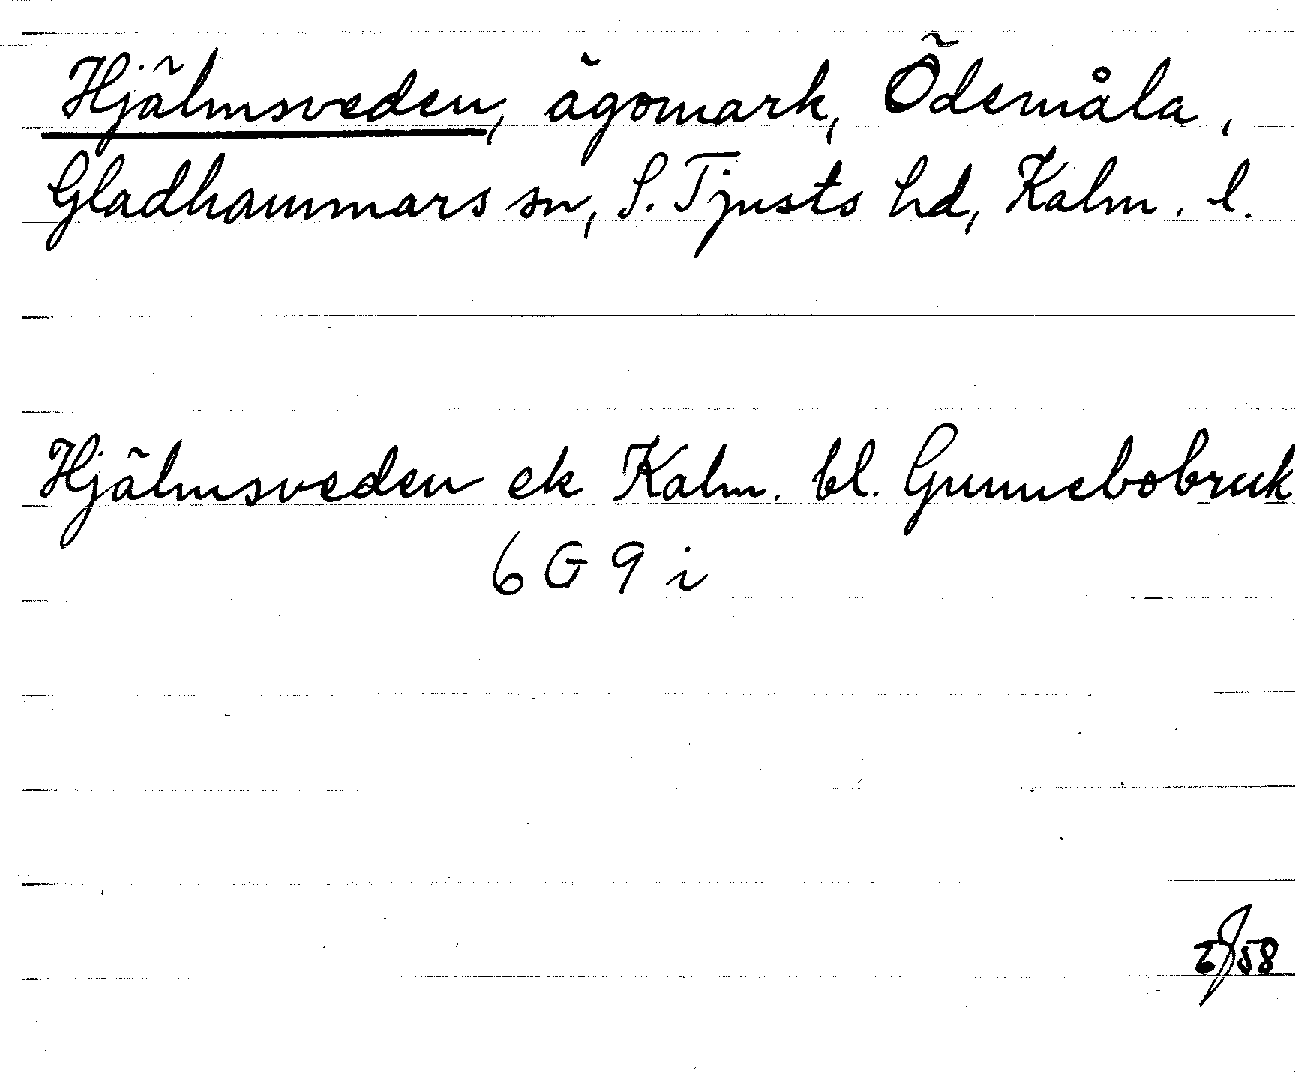 Hjälmsveden, ägomark, Ödemåla,
Gladhammars sn, S. Tjusts hd, Kalm. l.
Hjälmsveden ek Kalm. bl. Gunnebobruk
6 G 9 i
58